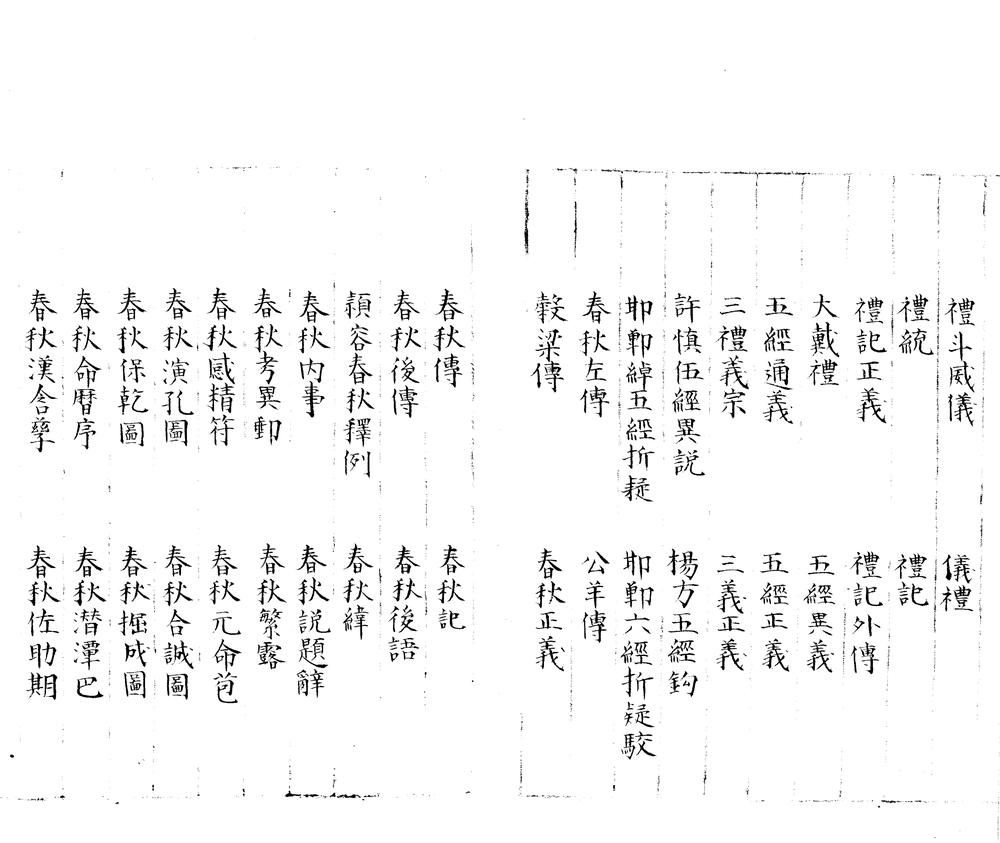 禮斗威儀　儀禮
禮統　禮記
禮記正義　禮記外傳
大戴禮　五經異義
五經通義　五經正義
三禮義宗　三義正義
許慎伍經異説　楊方五經鈎
耶鄿綽五經折疑　耶鄿六經折疑駮
春秋左傳　公羊傳
穀梁傳　春秋正義
春秋傳　春秋記
春秋後傳　春秋後語
頴容春秋釋例　春秋緯
春秋内事　春秋説題辭
春秋考異郵　春秋繁露
春秋感精符　春秋元命苞
春秋演孔圖　春秋合誠圖
春秋保乾圖　春秋掘成圖
春秋命曆序　春秋潛潭巴
春秋漢含孳　春秋佐助期